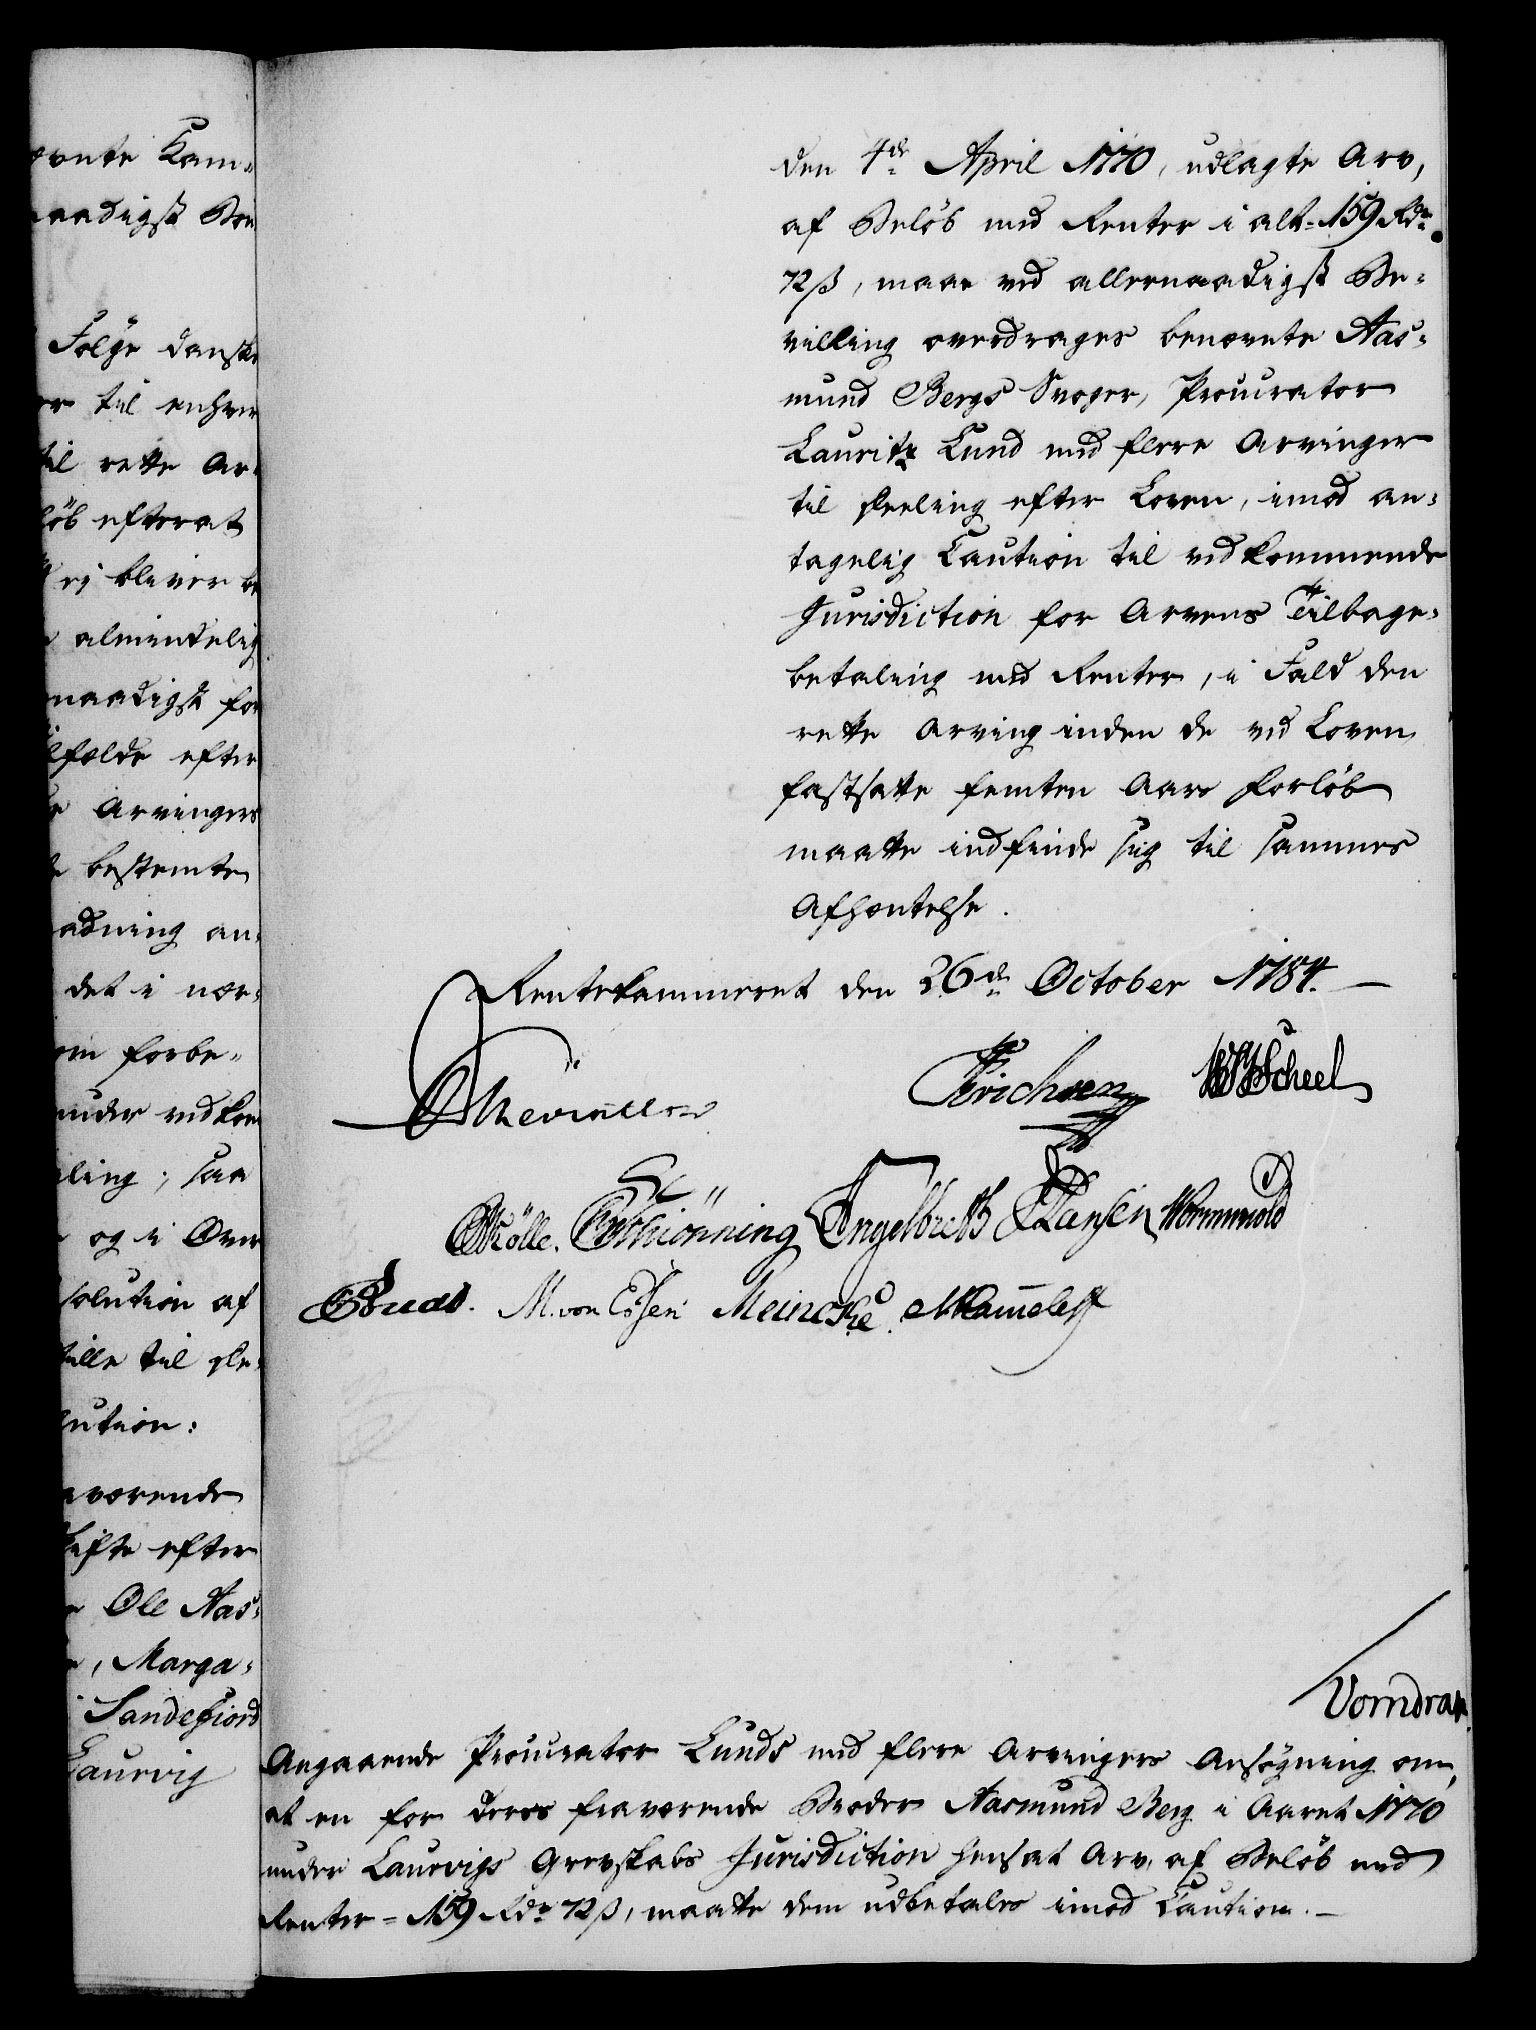 ævnte Kam-
naadigst Bev
Følge danske
er til enhver
til rette Ar-
løb efterat
ej bliver be
almindelig
naadigst for
lfælde efter
Arvingers
bestemte
adning an-
det i nær-
om forbe-
under vedkom
ling; saa
og i Over
solution af
stille til Re-
lution:
værende
kifte efter
Ole Aas-
, Marga-
Sandefiord
Laurvig
den 4de April 1770, udlagte Arv,
af Beløb med Renter i alt = 159 Rdr
72 ß, maae ved allernaadigst Be-
villing overdrages benævnte Aas-
mund Bergs Svoger, Procurator
Lauritz Lund med flere Arvinger
til Deeling efter Loven, imod an-
tagelig Caution til vedkommende
Jurisdiction for Arvens Tilbage-
betaling med Renter, i Fald den
rette Arving inden de ved Loven
fastsatte femten Aars Forløb
maatte indfinde sig til sammes
Afhentelse.
Rentekammeret den 26de October 1784.
Erichsen Scheel
Mölle. Schiönning Engelbreth Hansen Wormskiold
M. von Essen Meincke. Kammeleff
Vorndran.
Angaaende Procurator Lunds med flere Arvingers Ansøgning om,
at en for deres fraværende Broder Aasmund Berg i Aaret 1770
under Laurvigs Grevskabs Jurisdiction hensat Arv, af Beløb med
Renter = 159 Rdr 72 ß, maatte dem udbetales imod Caution.